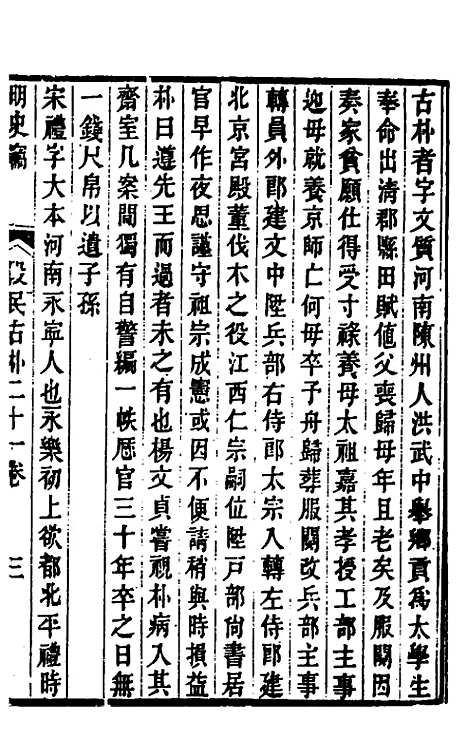 古朴者字文質河南陳州人洪武中舉鄉貢爲太學生
奉命出清郡縣田賦值父喪歸母年且老矣及服闋因
奏家貧願仕得受寸祿養母太祖嘉其孝授工部主事
迎母就養京師亡何母卒予舟歸葬服闋改兵部主事
轉員外郎建文中陞兵部右侍郎太宗入轉左侍郎建
北京宮殿董伐木之役江西仁宗嗣位陞戸部尚書居
官早作夜思謹守祖宗成憲或因不便請稍與時損益
朴曰遵先王而過者未之有也楊文貞嘗視朴病入其
齋室几案間獨有自警編一帙厯官三十年卒之日無
一錢尺帛以遺子孫
宋禮字大本河南永寧人也永樂初上欲都北平禮時
明史竊 段民古朴二十一卷 三